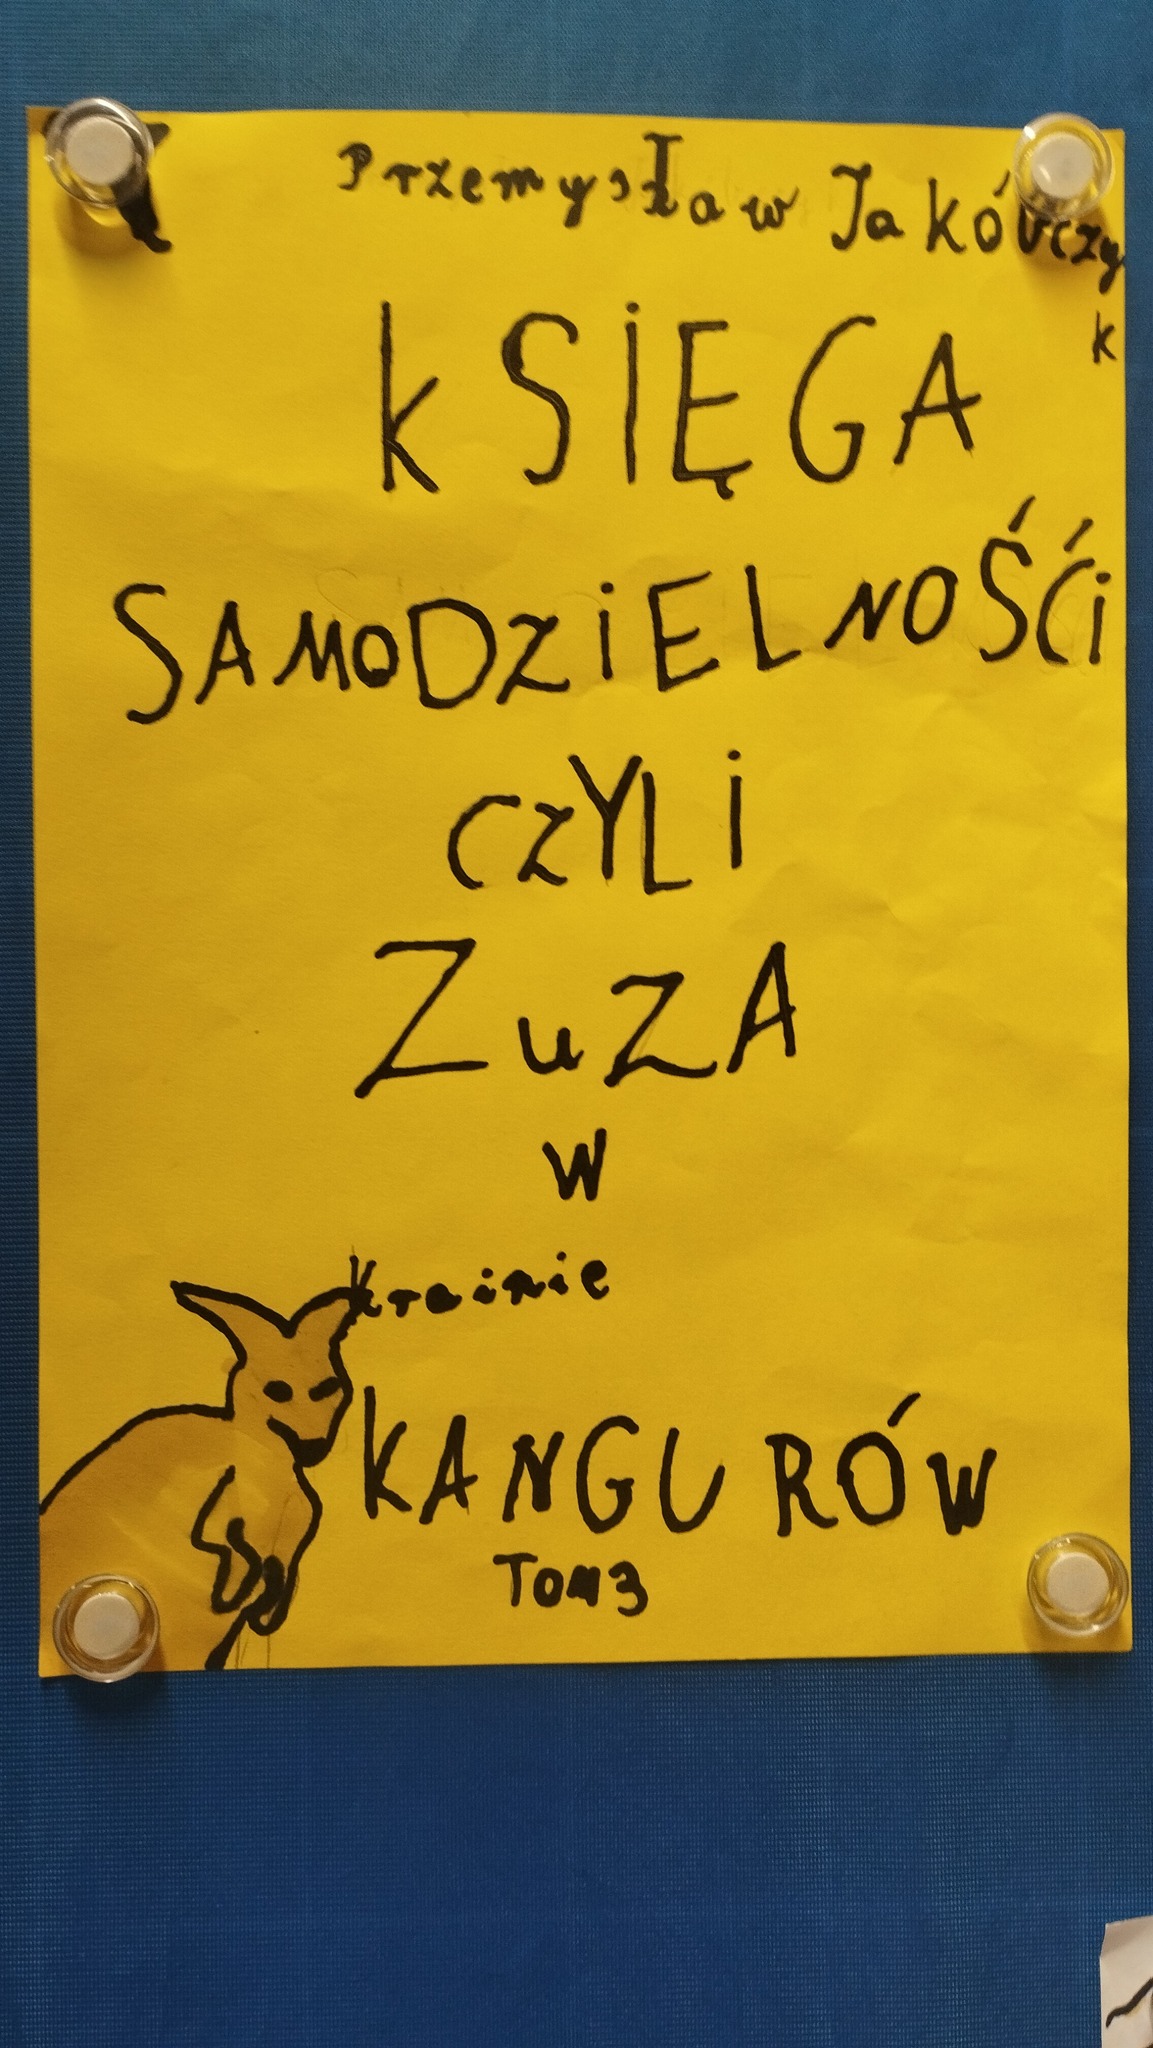 Przemysław Jakóbczy
k
kSiĘGA
SAMODZiELNOŚĆi
CZYLi
ZuZA
W
Krainie
KANGURÓW
Tom 3